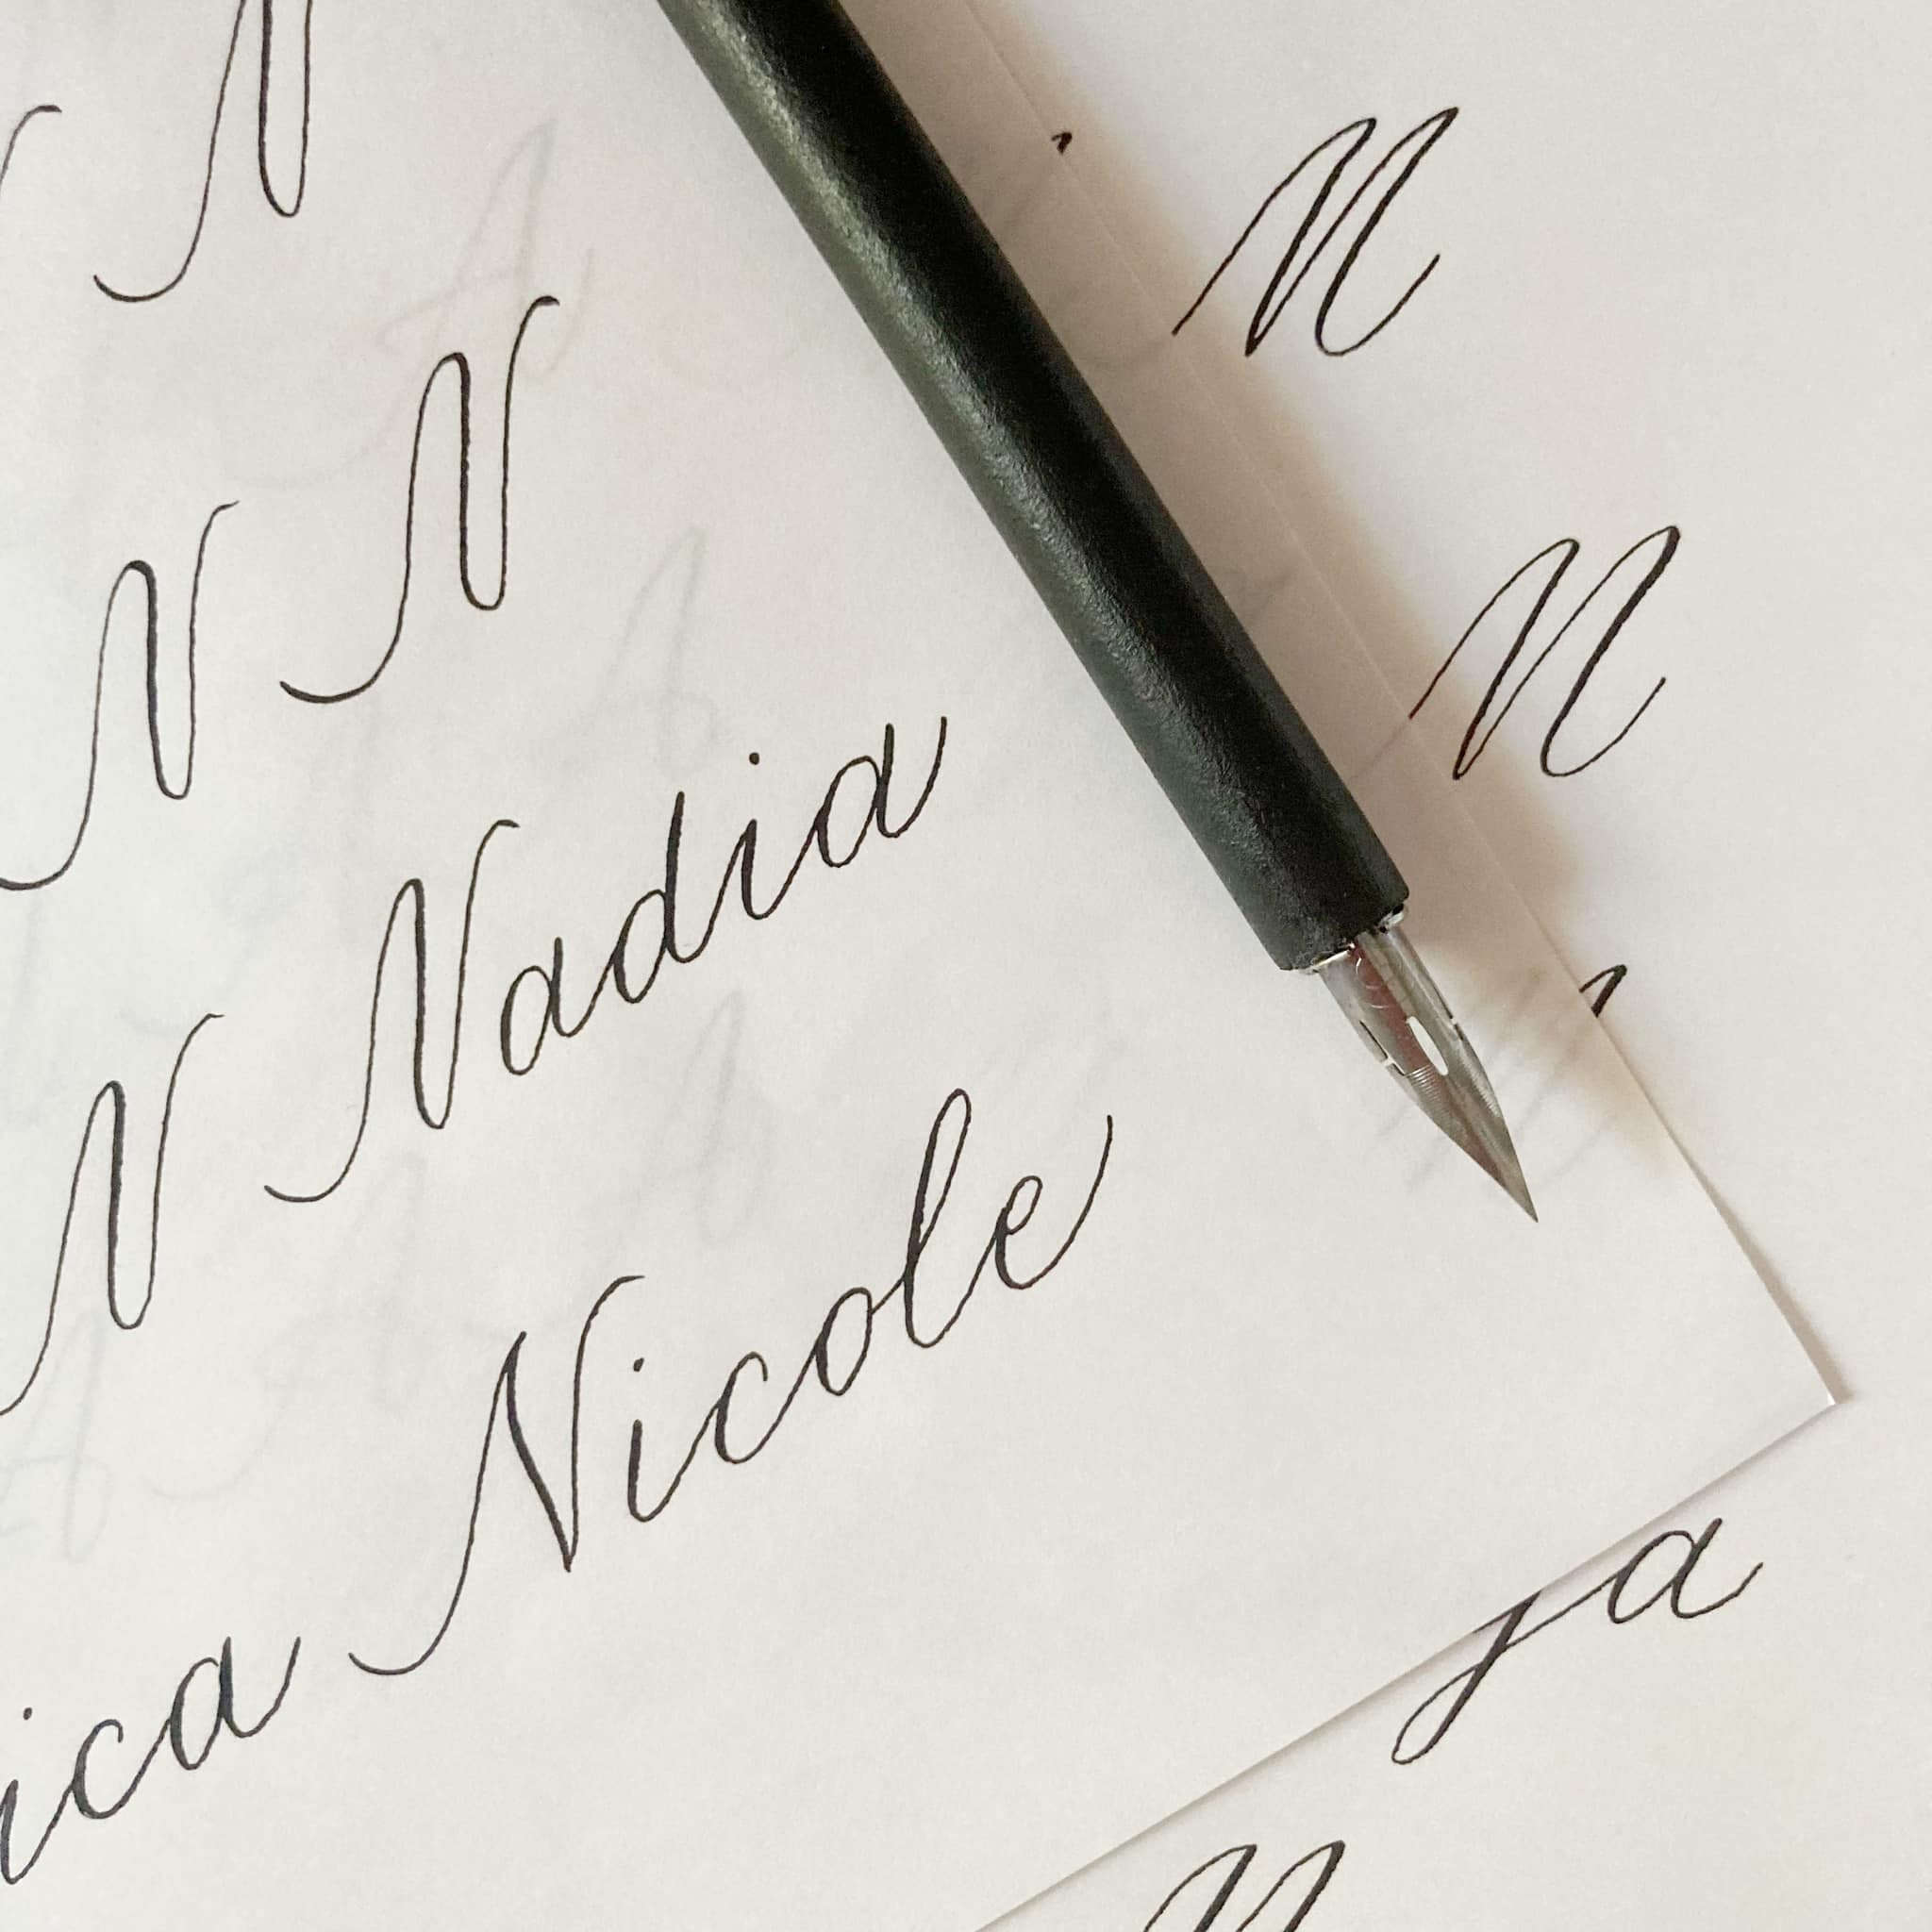 N
N N
N Nadia
ica Nicole
N
N
ja
N